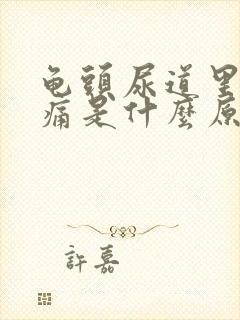 龟頭尿道里
痛是什麼原
許嘉